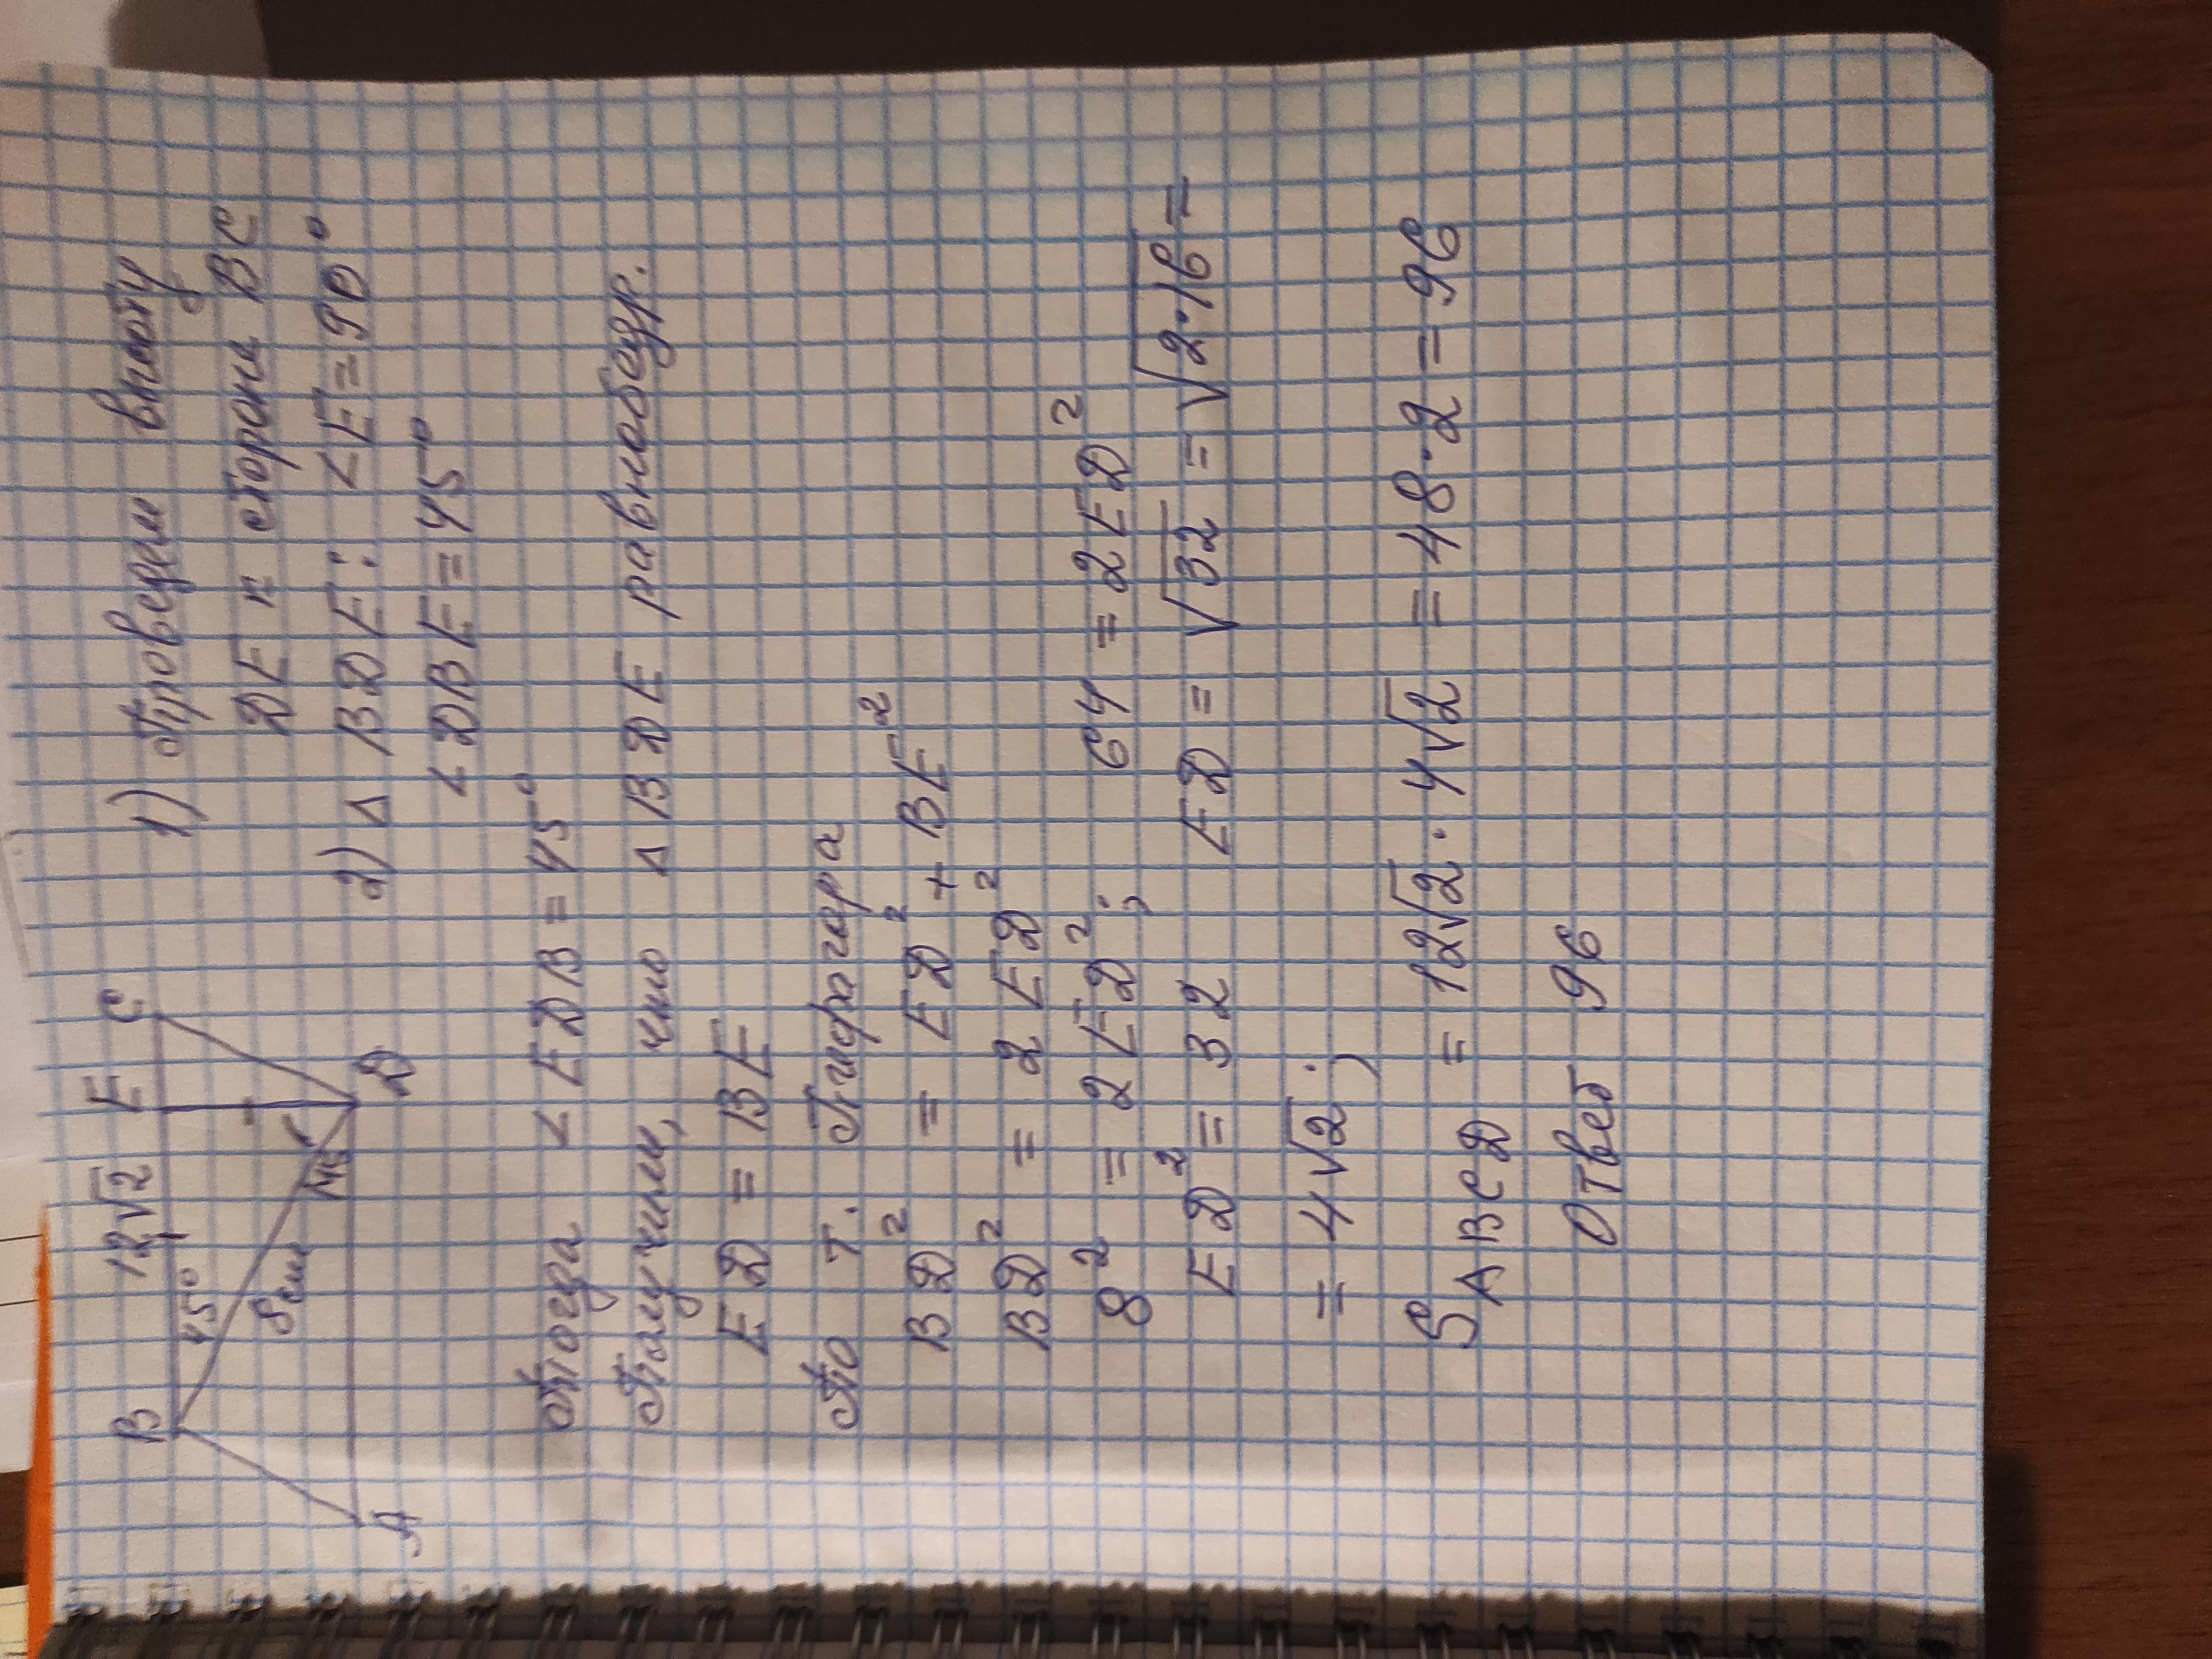 B 12√2 E C
45°
8см
45°
A D
1) Проведем высоту
DE к стороне BC
2) Δ BDE: <E = 90°
< DBE = 45°
Тогда < EDB = 45°
Получим, что Δ BDE равнобедр.
ED = BE
По т. Пифагора
BD² = ED² + BE²
BD² = 2 ED²
8² = 2 ED²; 64 = 2ED²
ED² = 32 ED = √32 = √2·16 =
= 4√2;
S ABCD = 12√2 · 4√2 = 48·2 = 96
Ответ 96